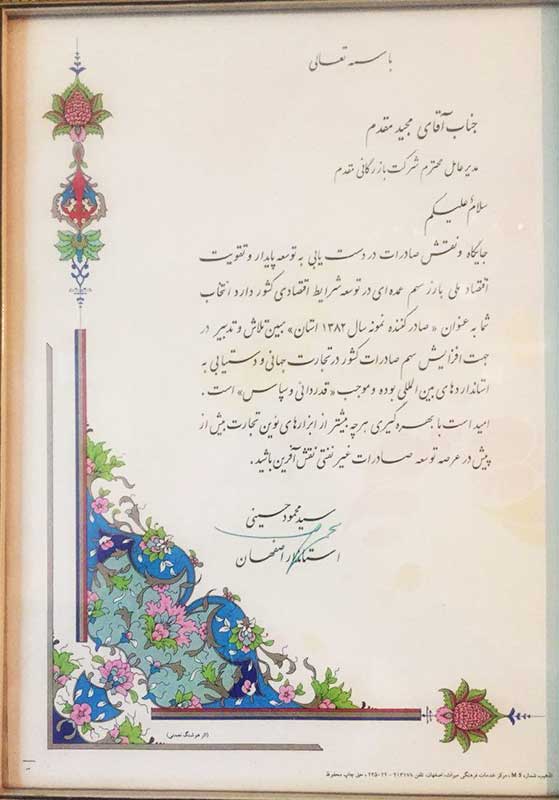 باسمه تعالی
جناب آقای مجید مقدم
مدیرعامل محترم شرکت بازرگانی مقدم
سلام علیکم
جایگاه و نقش صادرات در دست یابی به توسعه پایدار و تقویت
اقتصاد ملی بارز سهم عمده ای در توسعه شرایط اقتصادی کشور دارد انتخاب
شما به عنوان « صادرکننده نمونه سال ۱۳۸۲ استان» مبین تلاش و تدبیر در
جهت افزایش سهم صادرات کشور در تجارت جهانی و دستیابی به
استانداردهای بین المللی بوده و موجب « قدردانی و سپاس» است .
امید است با بهره گیری هرچه بیشتر از ابزارهای نوین تجارت بیش از
پیش در عرصه توسعه صادرات غیر نفتی نقش آفرین باشید .
سید محمود حسینی
استاندار اصفهان
(اثر هوشنگ نعمتی)
تذهیب شماره M 5 ، مرکز خدمات فرهنگی میراث، اصفهان، تلفن
، حق چاپ محفوظ